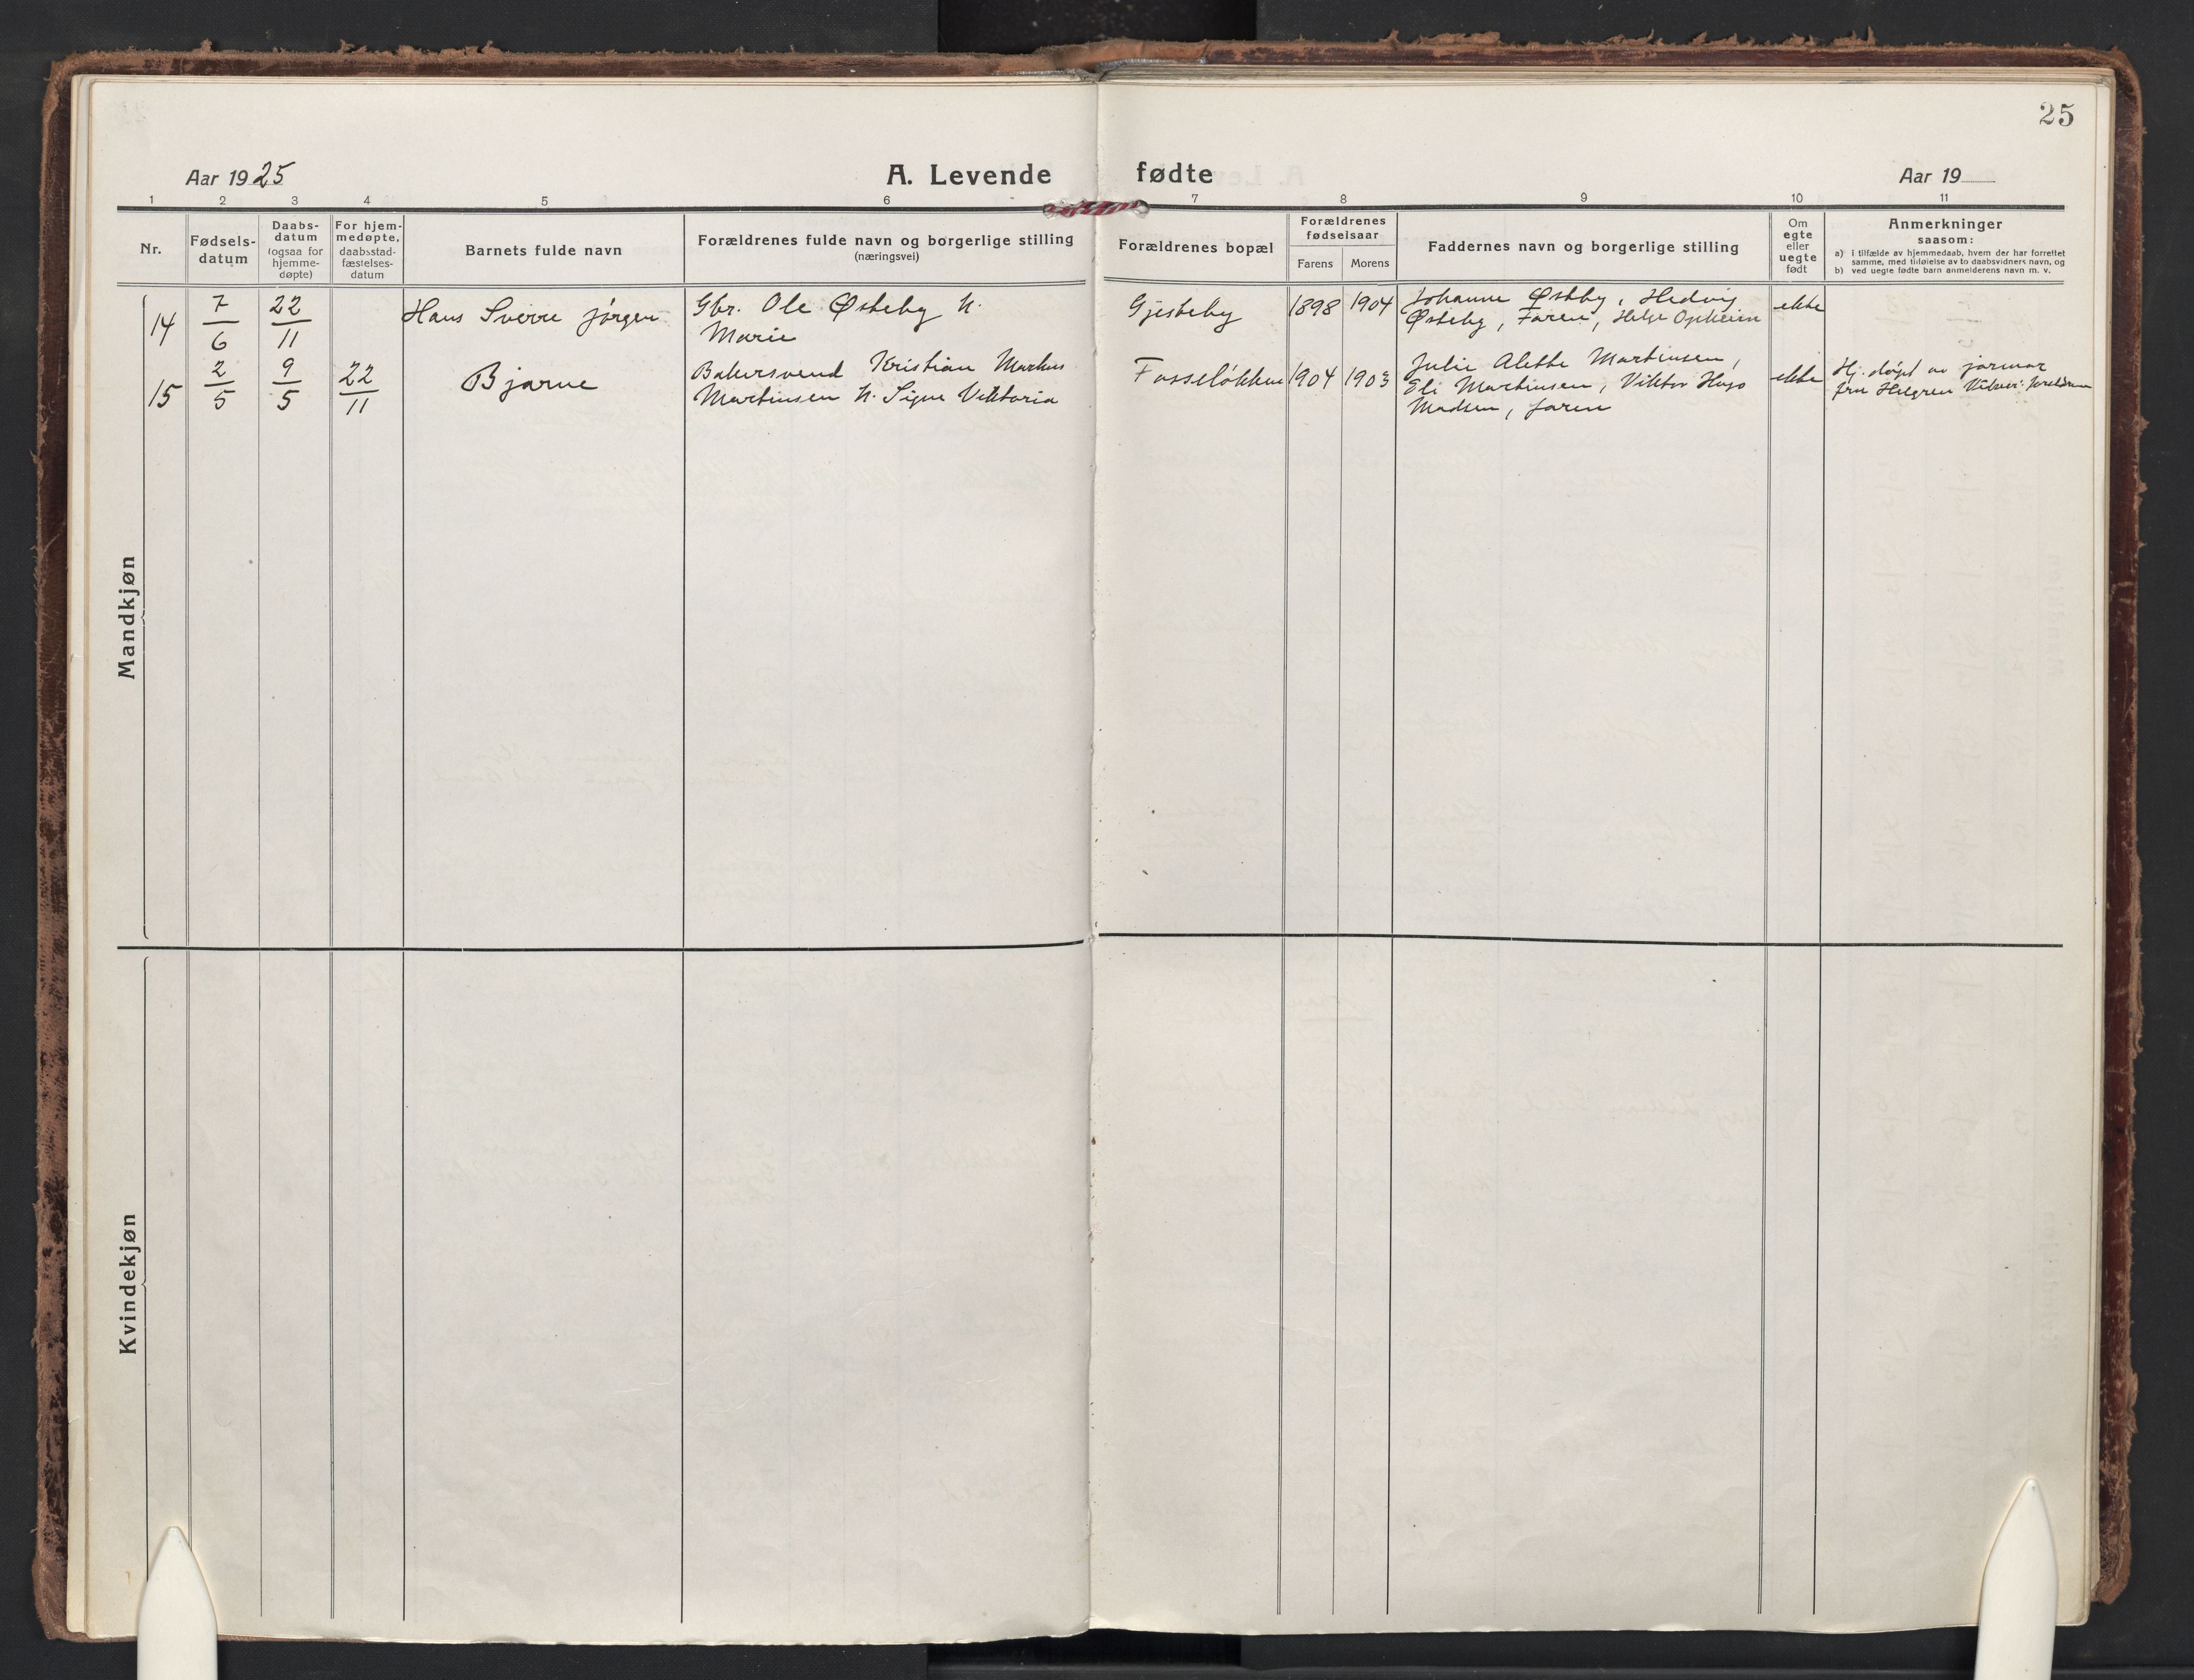 25
Aar 1925
A. Levende fødte
Aar 19
1 2 3 4 5 6 7 8 9 10 11
Nr.
Fødsels-
datum
Daabs-
datum
(ogsaa for
hjemme-
døpte)
For hjem-
medøpte,
daabsstad-
fæstelses-
datum
Barnets fulde navn
Forældrenes fulde navn og borgerlige stilling
(næringsvei)
Forældrenes bopæl
Forældrenes
fødselsaar
Farens Morens
Faddernes navn og borgerlige stilling
Om
egte
eller
uegte
født
Anmerkninger
saasom:
a) i tilfælde av hjemmedaab, hvem der har forrettet
samme, med tilføielse av to daabsvidners navn, og
b) ved uegte fødte barn anmelderens navn m. v.
Mandkjøn
14
7/6
22/11
Hans Sverre Jørgen
Gbr. Ole Østeby h.
Marie
Gjesteby
1898 1904
Johanne Østby, Hedvig
Østeby, Faren, Helge Opheim
ekte
15
2/5
9/5
22/11
Bjarne
Bakersvend Kristian Markus
Martinsen h. Signe Viktoria
Fosseløkken
1904 1903
Julie Alette Martinsen,
Eli Martinsen, Viktor Hugo
Madsen, faren
ekte
Hj. døpt av jormor
fru
Kvindekjøn